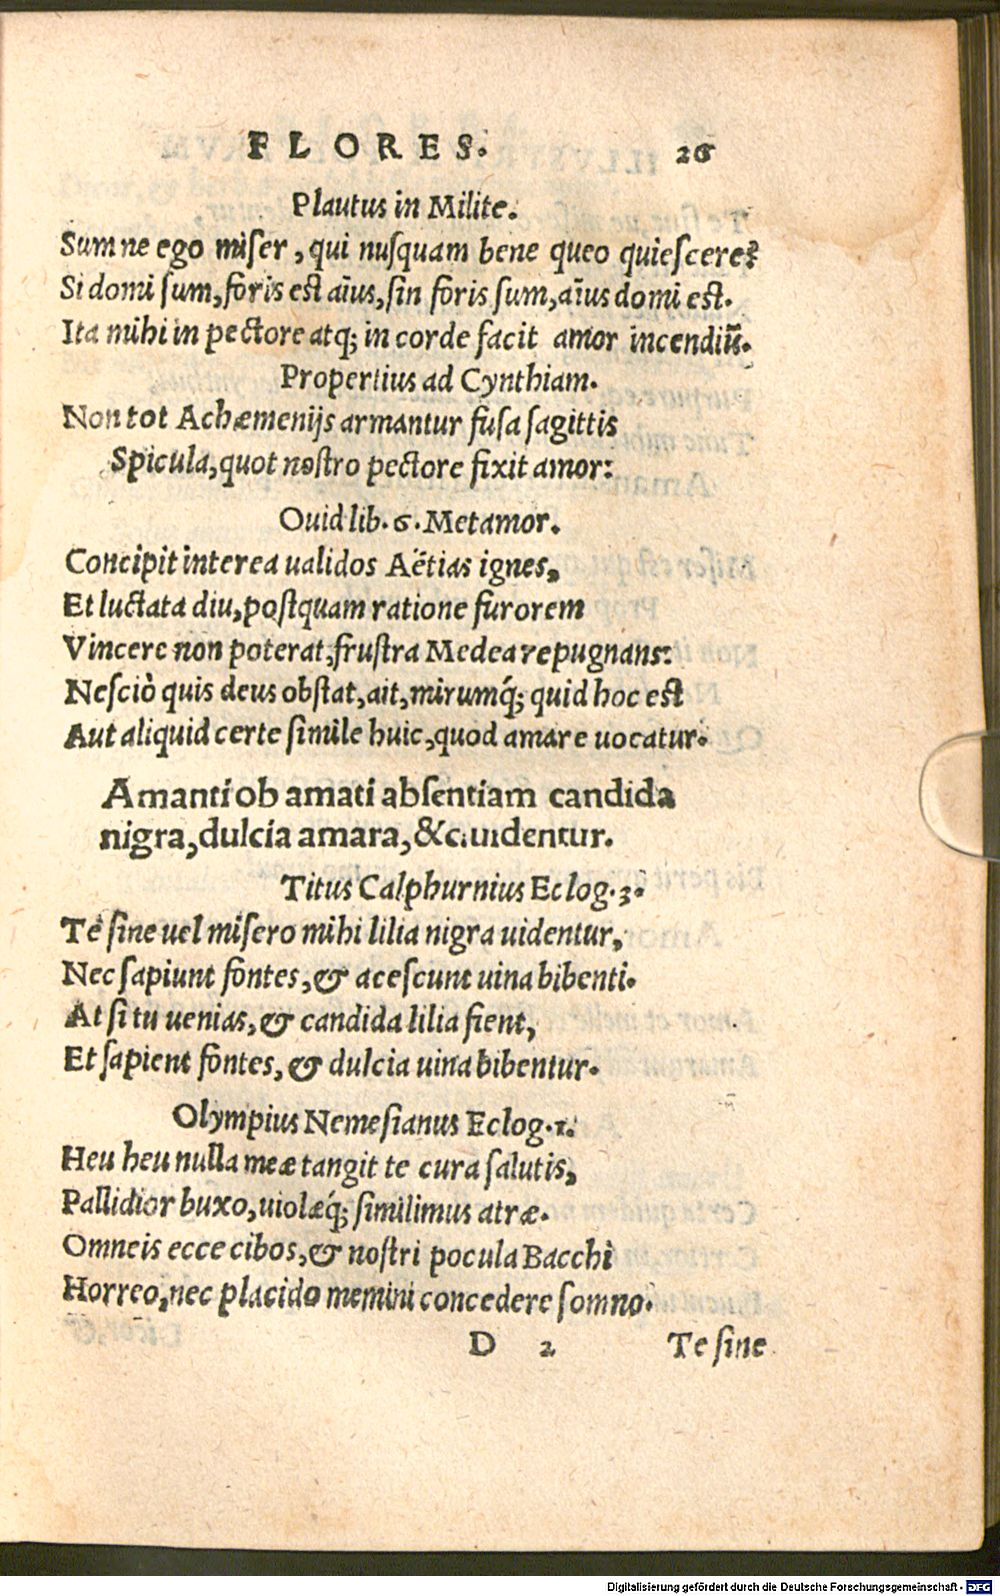 FLORES. 26
Plautus in Milite.
Sum ne ego miser, qui nusquam bene queo quiescere?
Si domi sum, foris est aīus, sin foris sum, aīus domi est.
Ita mihi in pectore atq; in corde facit amor incendiū.
Propertius ad Cynthiam.
Non tot Achæmenijs armantur fusa sagittis
Spicula, quot nostro pectore fixit amor:
Ouid lib. 6. Metamor.
Concipit interea ualidos Aëtias ignes,
Et luctata diu, postquam ratione furorem
Vincere non poterat, frustra Medea repugnans:
Nesciò quis deus obstat, ait, mirumq́; quid hoc est
Aut aliquid certe simile huic, quod amare uocatur.
Amanti ob amati absentiam candida
nigra, dulcia amara, &c. uidentur.
Titus Calphurnius Eclog. 3.
Te sine uel misero mihi lilia nigra uidentur,
Nec sapiunt fontes, & acescunt uina bibenti.
At si tu uenias, & candida lilia fient,
Et sapient fontes, & dulcia uina bibentur.
Olympius Nemesianus Eclog. 1.
Heu heu nulla meæ tangit te cura salutis,
Pallidior buxo, uiolæq́; similimus atræ.
Omneis ecce cibos, & nostri pocula Bacchi
Horreo, nec placido memini concedere somno.
D 2 Te sine
Digitalisierung gefördert durch die Deutsche Forschungsgemeinschaft - DFG